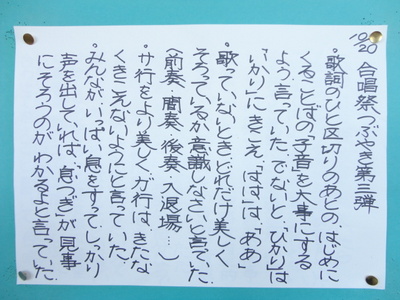 10/20 合唱祭つぶやき第三弾
・歌詞のひと区切りのあとの、はじめに
くることばの「子音」を大事にする
よう言っていた。でないと、「ひかり」は
「いかり」にきこえ、「はは」は、「ああ」
・歌っていないとき、どれだけ美しく
そろっているか意識しなさいと言ていた
(前奏、間奏、後奏、入退場…)
・サ行をより美しく、ガ行は、きたな
くきこえないようにと言っていた。
・みんなが、いっぱい息をすって、しっかり
声を出していれば、「息つぎ」が見事
にそろうのがわかるよと言っていた